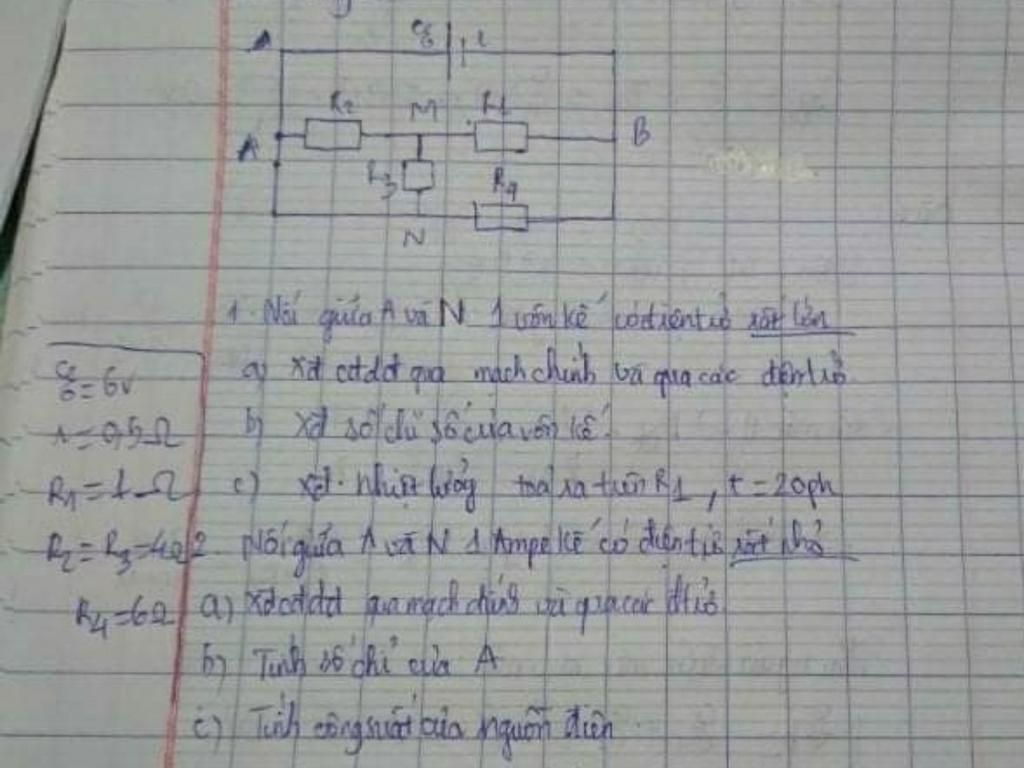 R2 M R1
A B
R3 R4
N
1. Nối giữa A và N 1 vôn kế có điện trở rất lớn
a) Xđ cđdđ qua mạch chính và qua các điện trở
b) Xđ số của vôn kế.
c) Xđ. nhiệt lượng toả ra trên R1, t = 20ph
2 Nối giữa A và N 1 Ampe kế có điện trở rất nhỏ
a) Xđ cđdđ qua mạch chính và qua các đtrở
b) Tính số chỉ của A
c) Tính công suất của nguồn điện.
= 6V
r = 0,5Ω
R1 = 1Ω
R2 = R3 = 4Ω
R4 = 6Ω